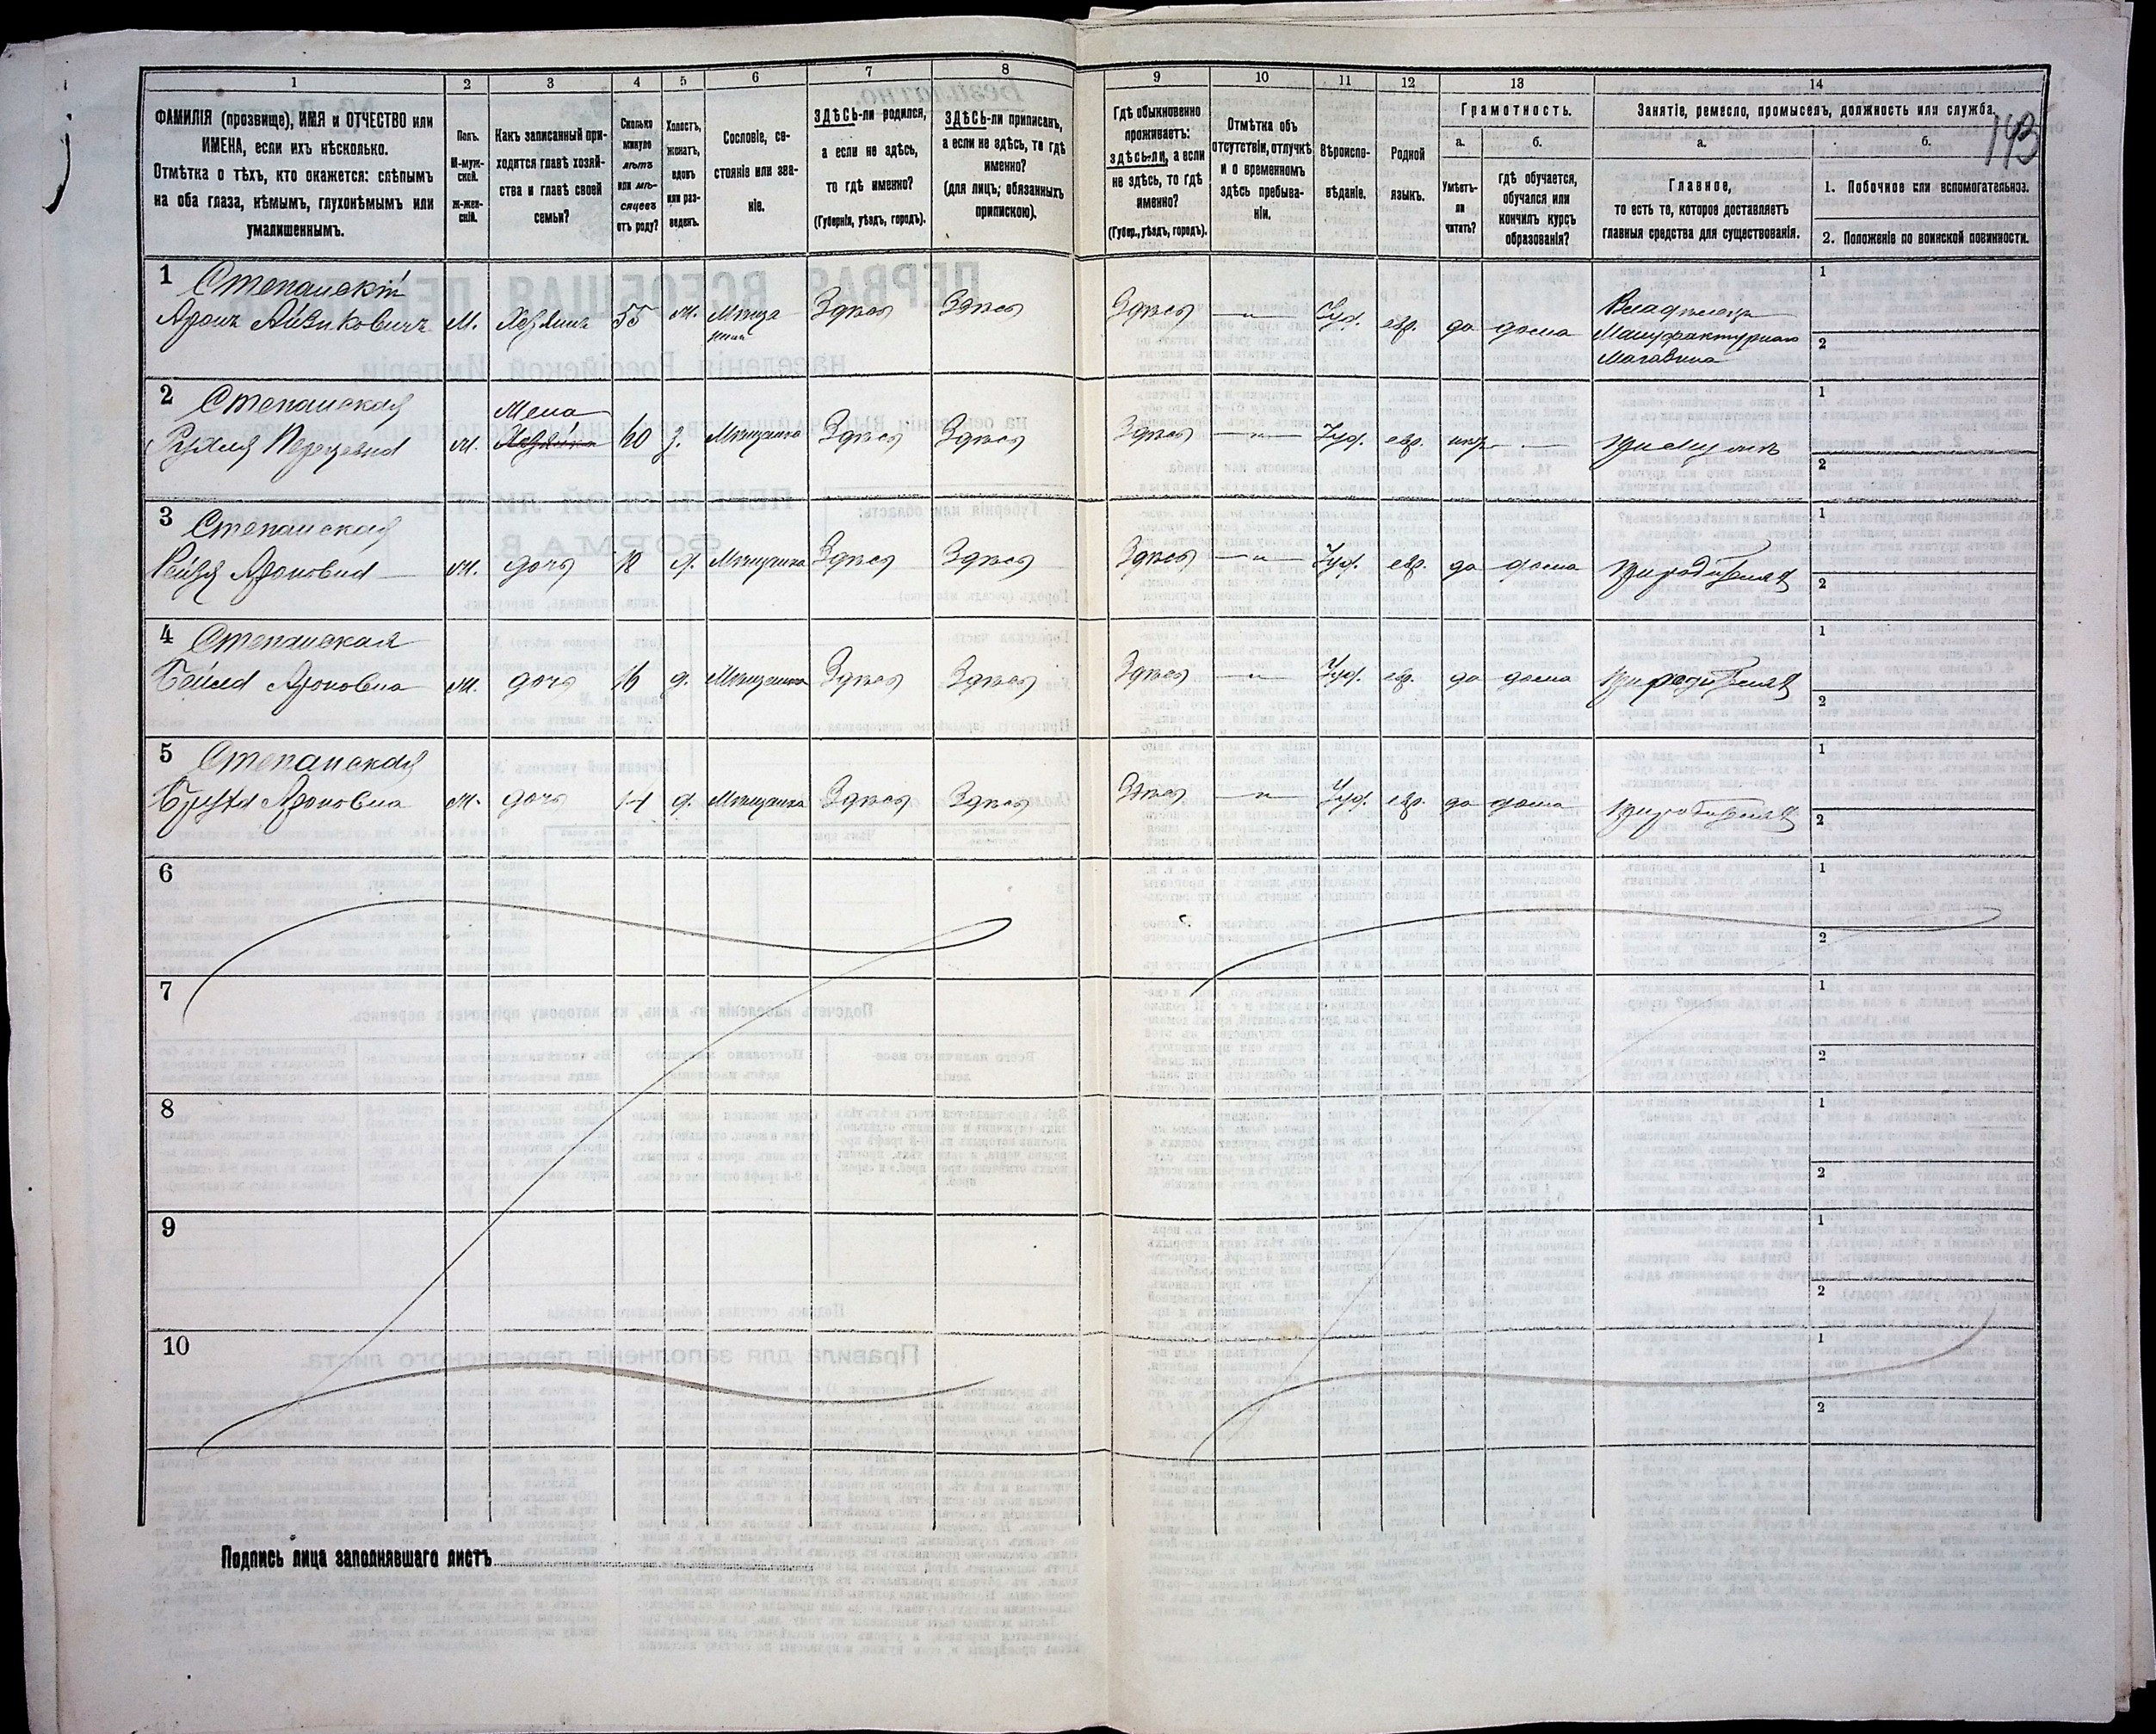 1 2 3 4 5 6 7 8 9 10 11 12 13 14
143
ФАМИЛІЯ (прозвище), ИМЯ и ОТЧЕСТВО или
ИМЕНА, если ихъ нѣсколько.
Отмѣтка о тѣхъ, кто окажется: слѣпымъ
на оба глаза, нѣмымъ, глухонѣмымъ или
умалишеннымъ.
Полъ.
М-муж-
ской.
Ж-жен-
скій.
Какъ записанный при-
ходится главѣ хозяй-
ства и главѣ своей
семьи?
Сколько
минуло
лѣтъ
или мѣ-
сяцевъ
отъ роду?
Холостъ,
женатъ,
вдовъ
или раз-
веденъ.
Сословіе, со-
стояніе или зва-
ніе.
ЗДѢСЬ-ли родился,
а если не здѣсь,
то гдѣ именно?
(Губернія, уѣздъ, городъ).
ЗДѢСЬ-ли приписанъ,
а если не здѣсь, то гдѣ
именно?
(для лицъ, обязанныхъ
припискою).
Гдѣ обыкновенно
проживаетъ:
здѣсь-ли, а если
не здѣсь, то гдѣ
именно?
(Губер., уѣздъ, городъ).
Отмѣтка объ
отсутствіи, отлучкѣ
и о временномъ
здѣсь пребыва-
ніи.
Вѣроиспо-
вѣданіе.
Родной
языкъ.
Грамотность.
а.
Умѣетъ-
ли
читать?
б.
гдѣ обучается,
обучался или
кончилъ курсъ
образованія?
Занятіе, ремесло, промыселъ, должность или служба.
а.
Главное,
то есть то, которое доставляетъ
главныя средства для существованія.
б.
1. Побочное или вспомогательное.
2. Положеніе по воинской повинности.
1 Степанскій
Аронъ Айзиковичъ М. Хозяинъ 55 ж. Мѣща
нинъ Здѣсь Здѣсь Здѣсь — Іуд. евр. да дома Владѣлецъ
Мануфактурнаго
Магазина
1
2
2 Степанская
Рухля м. Жена
Хозяйка 60 з. Мѣщанка Здѣсь Здѣсь Здѣсь — Іуд. евр. нѣтъ — при мужѣ
1
2
3 Степанская
Рейзя Ароновна м. дочь 18 д. Мѣщанка Здѣсь Здѣсь Здѣсь — Іуд. евр. да дома при родителяхъ
1
2
4 Степанская
Бейла Ароновна м. дочь 16 д. Мѣщанка Здѣсь Здѣсь Здѣсь — Іуд. евр. да дома при родителяхъ
1
2
5 Степанская
Бруха Ароновна м. дочь 14 д. Мѣщанка Здѣсь Здѣсь Здѣсь — Іуд. евр. да дома при родителяхъ
1
2
6
1
2
7
1
2
8
1
2
9
1
2
10
1
2
Подпись лица заполнявшаго листъ